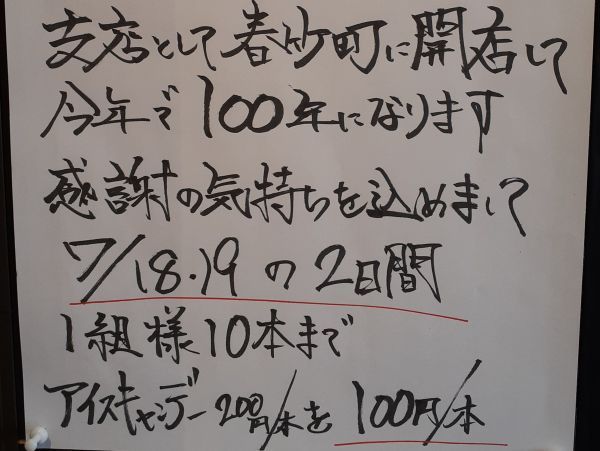 支店として春竹町に開店して
今年で100年になります
感謝の気持ちを込めまして
7/18.19の2日間
1組様10本まで
アイスキャンデー200円/本を100円/本